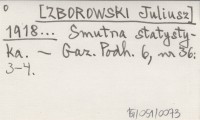 [ZBOROWSKI Juliusz]
1918... Smutna statysty-
ka. — Gaz. Podh. 6, nr 36:
3-4.
15/051/0093